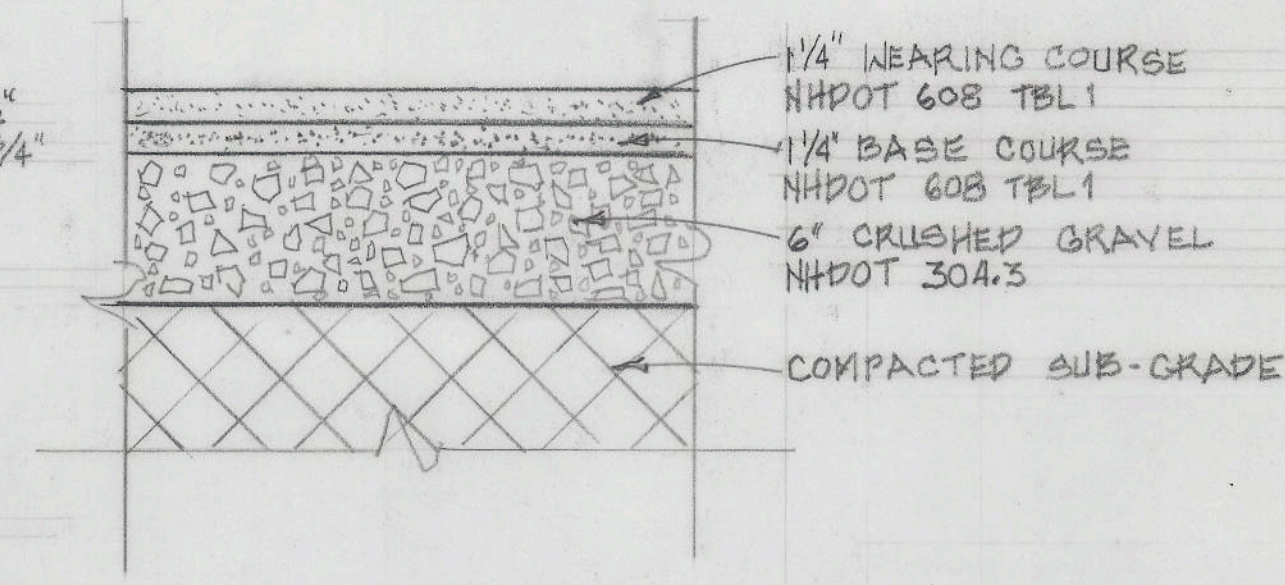 /4"
1 1/4" WEARING COURSE
NHDOT 608 TBL 1
1 1/4" BASE COURSE
NHDOT 608 TBL 1
6" CRUSHED GRAVEL
NHDOT 304.3
COMPACTED SUB-GRADE